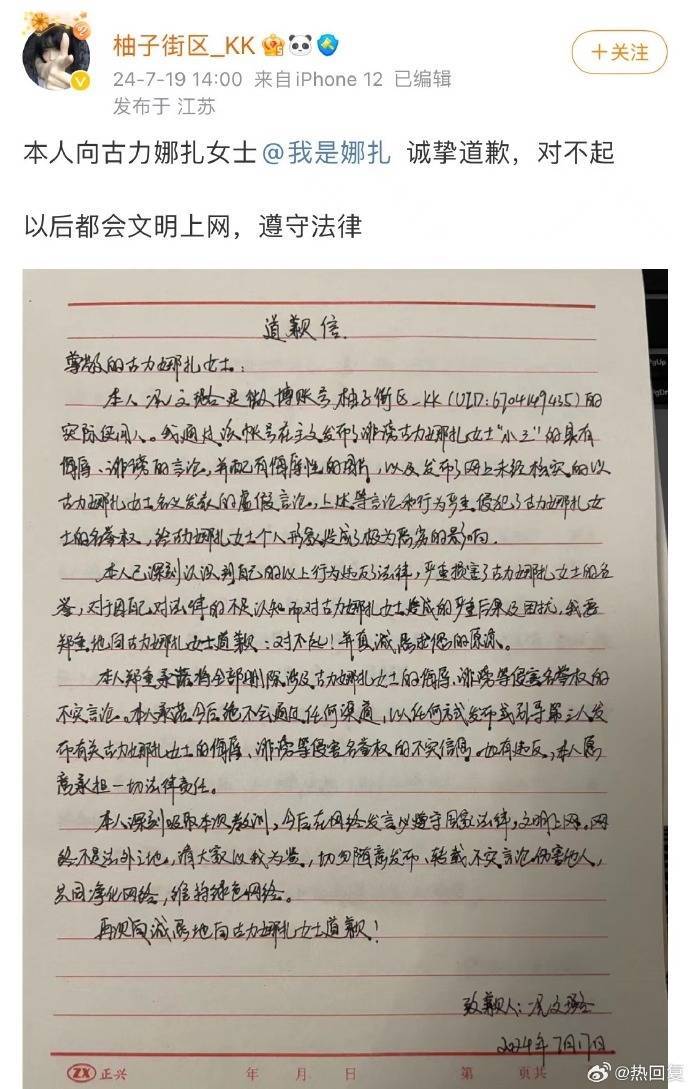 柚子街区_KK
24-7-19 14:00 来自iPhone 12 已编辑
发布于 江苏
+关注
本人向古力娜扎女士@我是娜扎 诚挚道歉，对不起
以后都会文明上网，遵守法律
道歉信
尊敬的古力娜扎女士：
本人是微博账号柚子街区_KK(UID:6704149435)的
实际使用人。我通过该帐号在主文发布了诽谤古力娜扎女士“小三”的具有
侮辱、诽谤的言论，并配有侮辱性的图片，以及发布了网上未经核实的以
古力娜扎女士名义发表的虚假言论，上述等言论和行为严重侵犯了古力娜扎女
士的名誉权，给古力娜扎女士个人形象造成了极为恶劣的影响。
本人已深刻认识到自己的以上行为违反了法律，严重损害了古力娜扎女士的名
誉，对于因自己对法律的不足认知而对古力娜扎女士造成的严重后果及困扰，我要
郑重地向古力娜扎女士道歉：对不起！并真诚恳求您的原谅。
本人郑重承诺将全部删除涉及古力娜扎女士的侮辱、诽谤等侵害名誉权的
不实言论。本人承诺今后绝不会通过任何渠道，以任何方式发布或引导第三人发
布有关古力娜扎女士的侮辱、诽谤等侵害名誉权的不实信息。如有违反，本人愿
意承担一切法律责任。
本人深刻吸取本次教训，今后在网络发言以遵守国家法律，文明上网。网
络不是法外之地，请大家以我为鉴，切勿随意发布、转载不实言论伤害他人，
共同净化网络，维持绿色网络。
再次诚恳地向古力娜扎女士道歉！
致歉人：
2024年7月17日
ZX 正兴 年 月 日 第 页共
PgUp
PgDn
@热回复